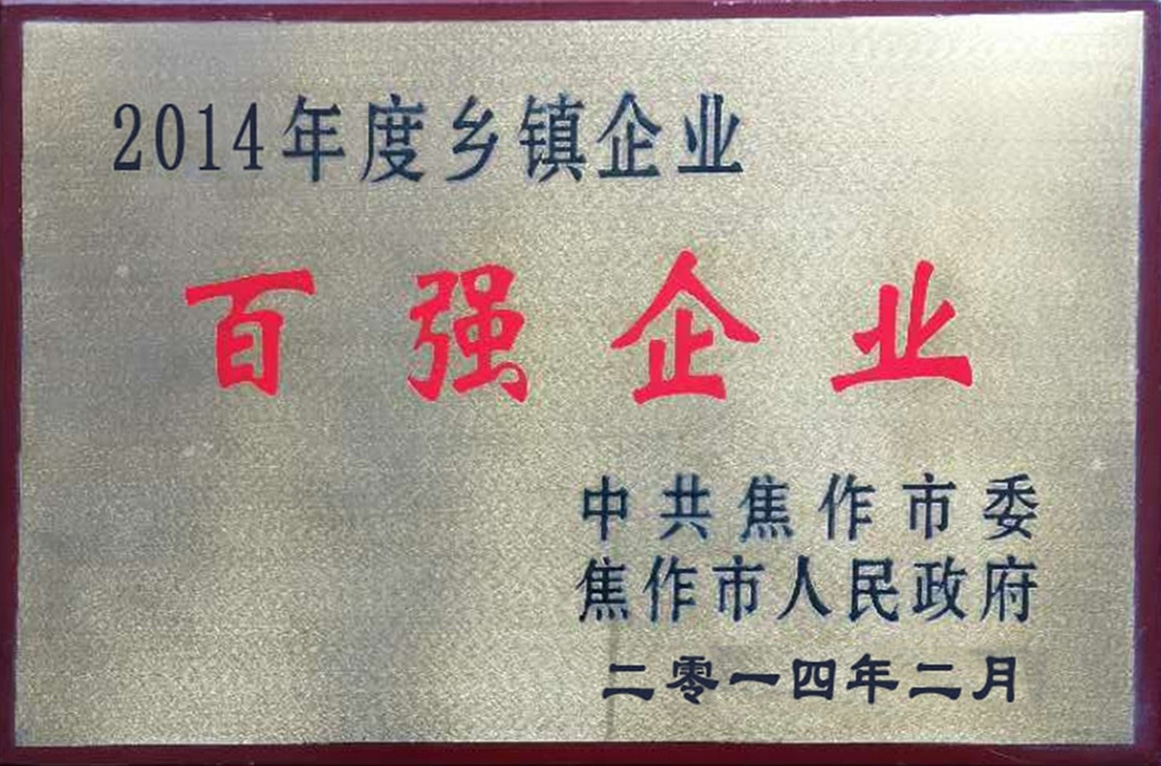 2014年度乡镇企业
百强企业
中共焦作市委
焦作市人民政府
二零一四年二月